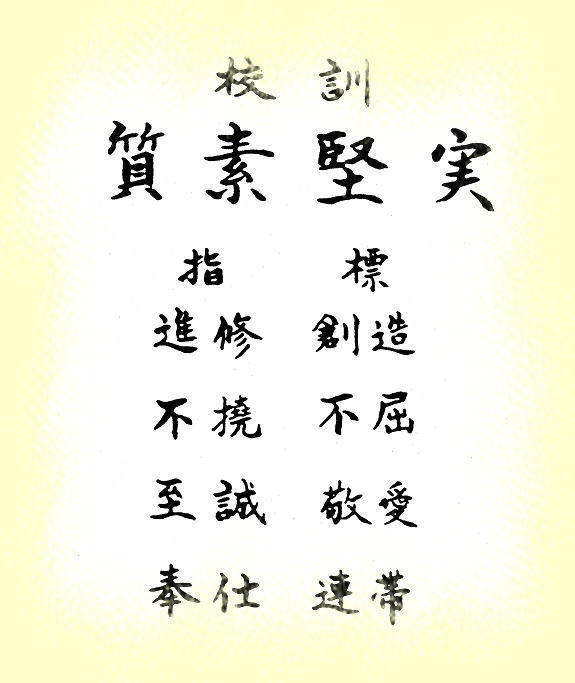 校訓
質素堅実
指標
進修 創造
不撓 不屈
至誠 敬愛
奉仕 連帯